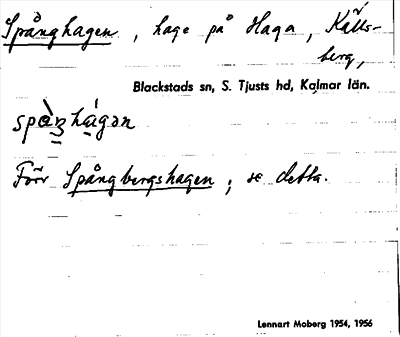 Spånghagen, hage på Haga, Källs-
berg,
Blackstads sn, S. Tjusts hd, Kalmar län.
Förr Spångbergshagen, se detta.
Lennart Moberg 1954, 1956